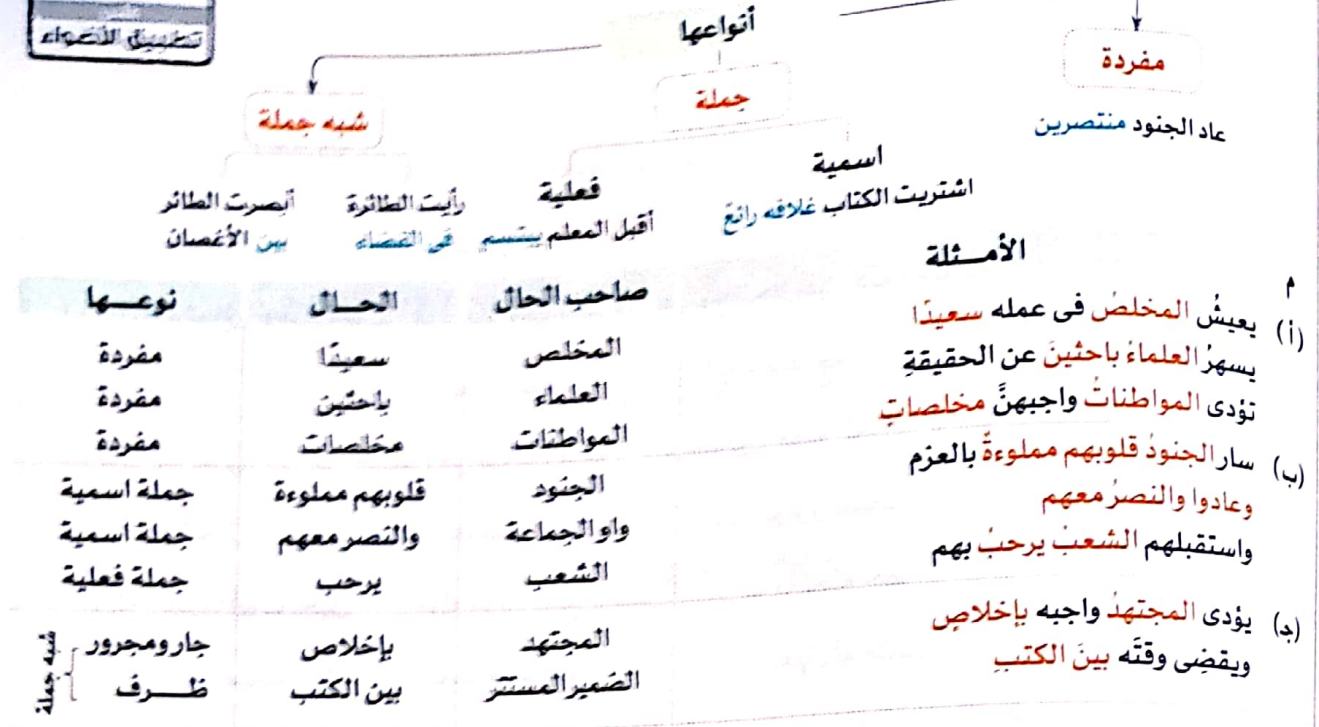 تطبيق الأضواء
أنواعها
مفردة
جملة
شبه جملة
عاد الجنود منتصرين
اسمية
اشتريت الكتاب غلافه رائع
فعلية
أقبل المعلم يبتسم
رأيت الطائرة
فى الفضاء
أبصرت الطائر
بين الأغصان
م
الأمـثلة
صاحب الحال
الحـال
نوعـها
(أ) يعيشُ المخلصُ فى عمله سعيدًا
المخلص
سعيدًا
مفردة
يسهرُ العلماءُ باحثينَ عن الحقيقةِ
العلماء
باحثين
مفردة
تؤدى المواطناتُ واجبهنَّ مخلصاتٍ
المواطنات
مخلصات
مفردة
(ب) سار الجنودُ قلوبهم مملوءةٌ بالعزم
الجنود
قلوبهم مملوءة
جملة اسمية
وعادوا والنصرُ معهم
واو الجماعة
والنصر معهم
جملة اسمية
واستقبلهم الشعبُ يرحبُ بهم
الشعب
يرحب
جملة فعلية
(جـ) يؤدى المجتهدُ واجبه بإخلاصٍ
المجتهد
بإخلاص
جار ومجرور
ويقضِى وقتَه بينَ الكتبِ
الضمير المستتر
بين الكتب
ظـرف
شبه جملة